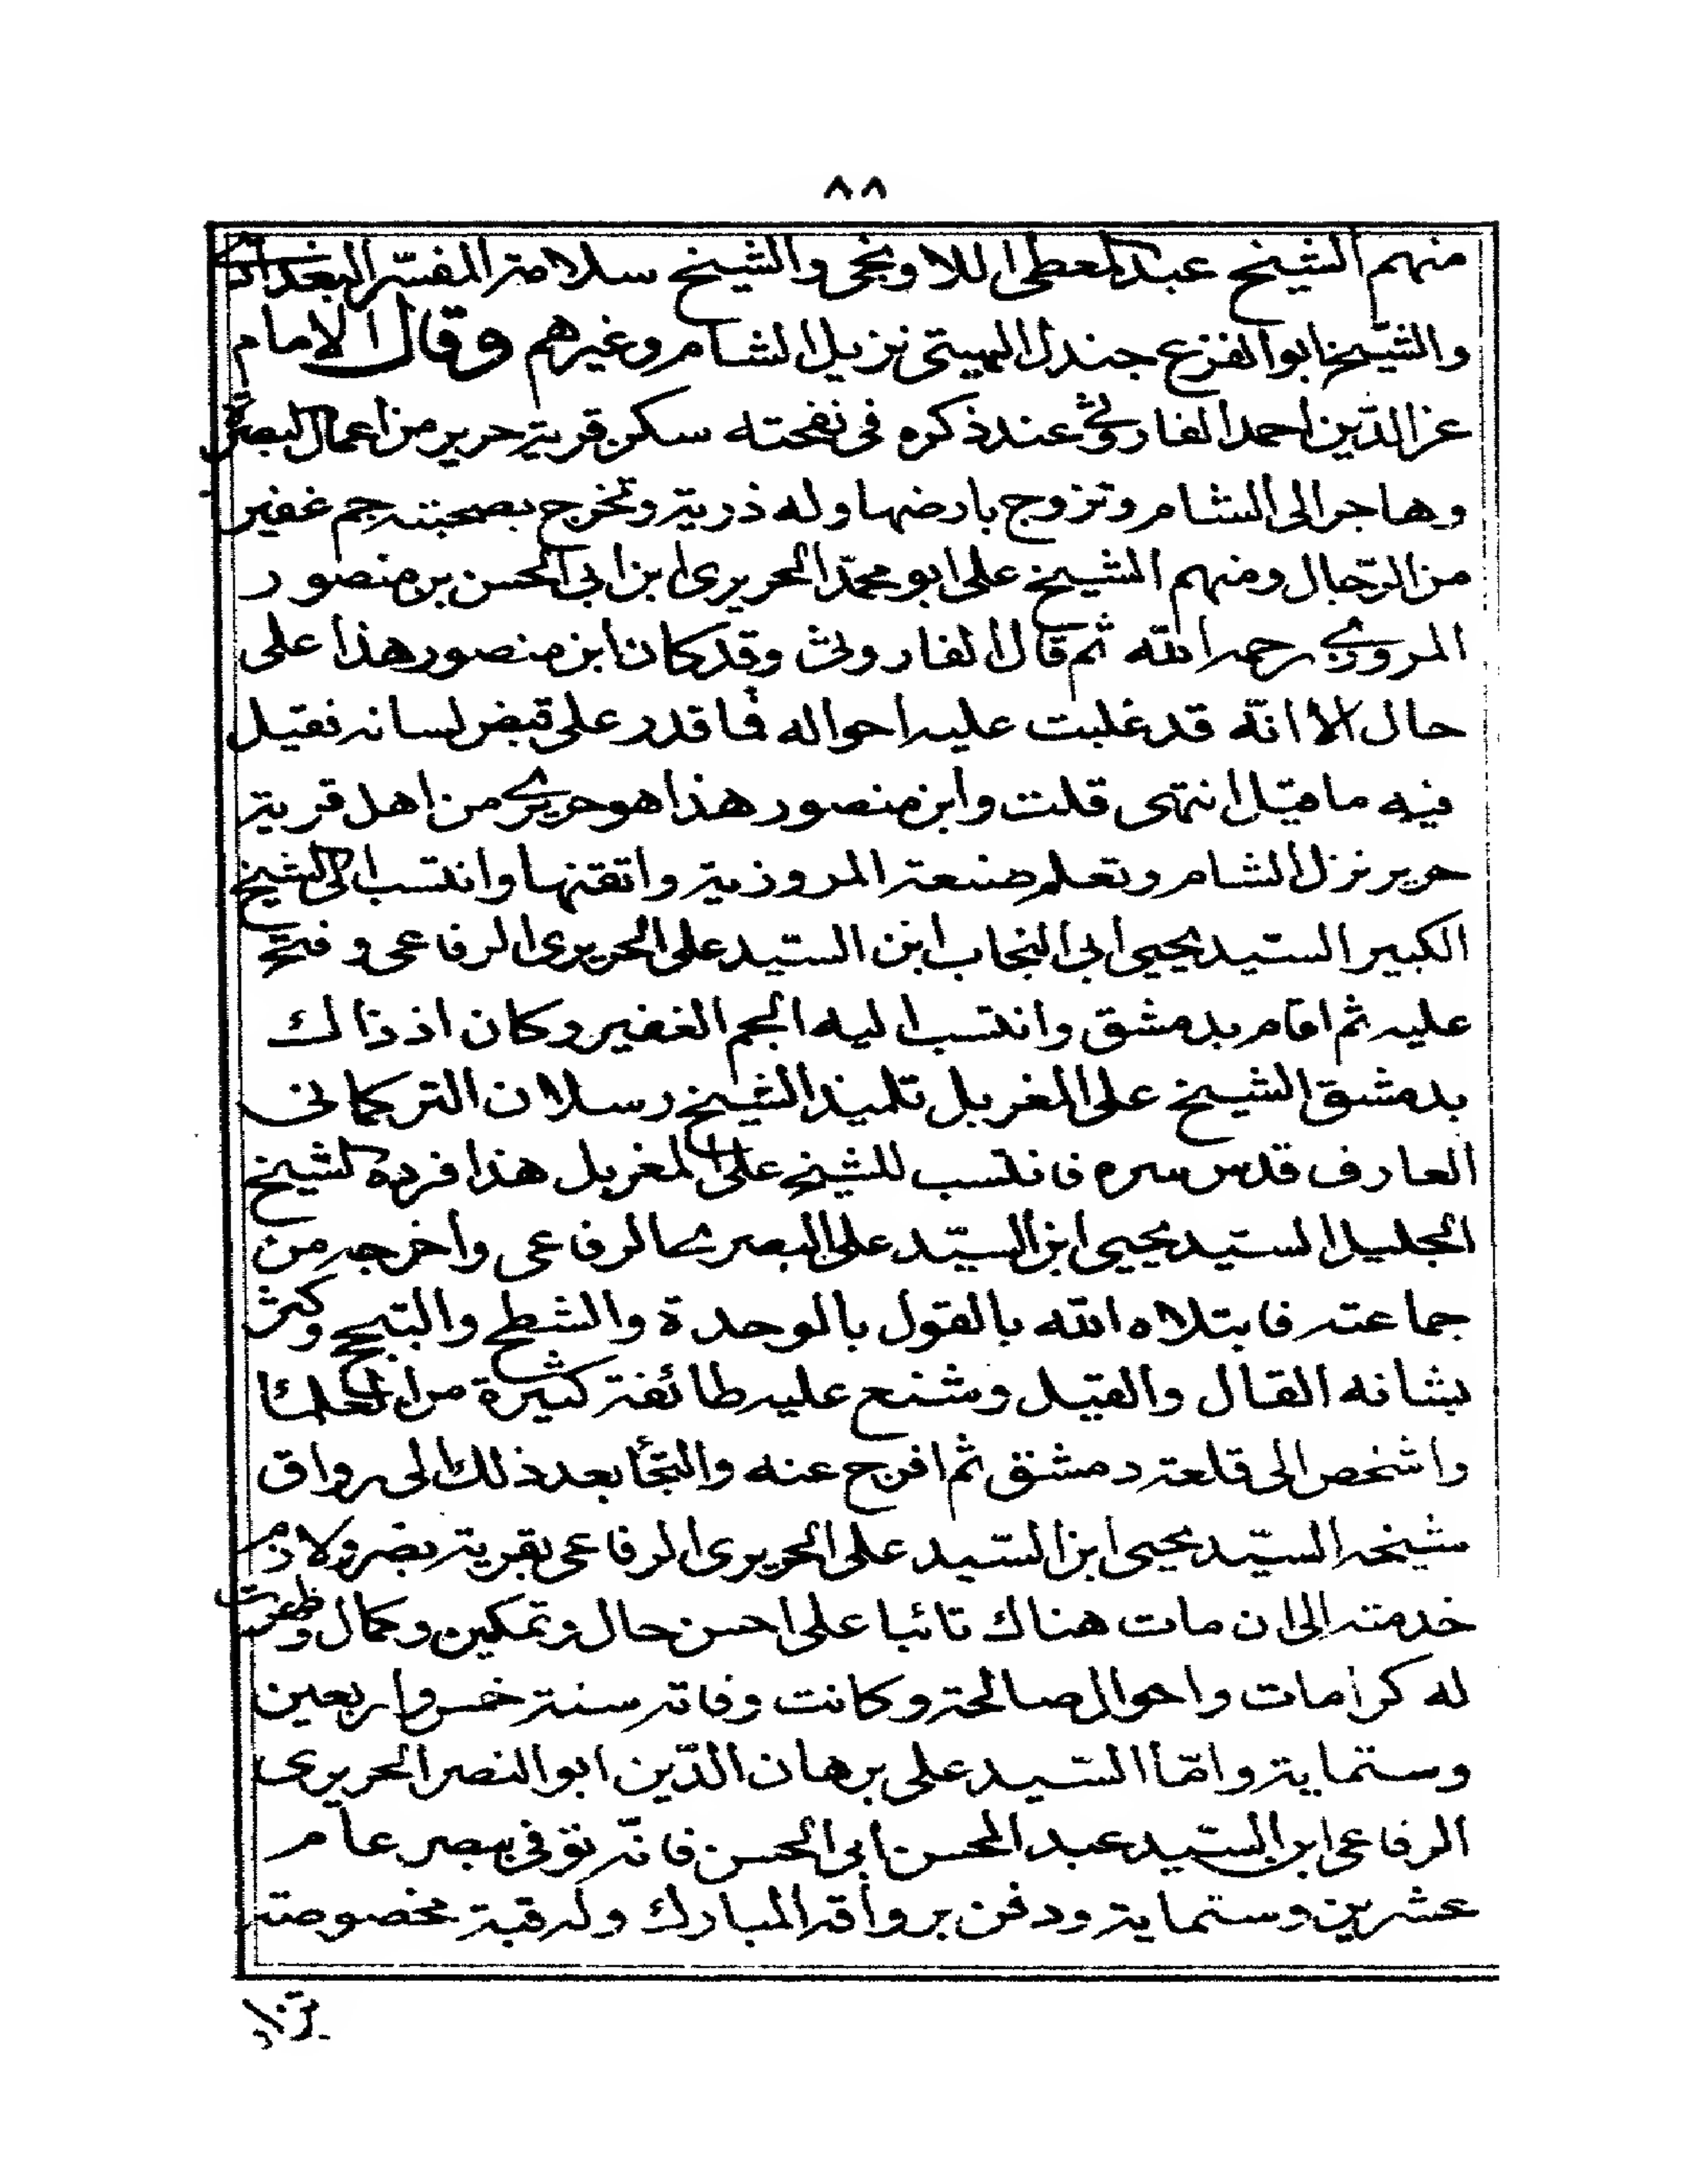 ٨٨
منهم الشيخ عبد المعطى اللاونجى والشيخ سلامة المفسّر البغدادى
والشيخ ابو الفزع جندل الهيتى نزيل الشام وغيرهم وقال الامام
عز الدّين احمد الفاروثى عند ذكره فى نفحته سكن قرية حرير من اعمال البصرة
وهاجر الى الشام وتزوج بارضها وله ذرية وتخرج بصحبته جم غفير
من الرّجال ومنهم الشيخ على ابو محمّد الحريرى ابن ابى الحسن بن منصور
المروزى رحمه الله ثم قال الفاروثى وقد كان ابن منصور هذا على
حال الا انّه قد غلبت عليه احواله فما قدر على قبض لسانه فقيل
فيه ما قيل انتهى قلت وابن منصور هذا هو حريرى من اهل قرية
حرير نزل الشام وتعلم صنعة المروزية واتقنها وانتسب الى الشيخ
الكبير السيّد يحيى ابى النجاب ابن السيّد على الحريرى الرفاعى وفتح
عليه ثم اقام بدمشق وانتسب اليه الجم الغفير وكان اذ ذاك
بدمشق الشيخ على المغربل تلميذ الشيخ رسلان التركمانى
العارف قدس سره فانتسب للشيخ على المغربل هذا فرده الشيخ
الجليل السيد يحيى ابن السيّد على البصرى الرفاعى واخرجه من
جماعته فابتلاه الله بالقول بالوحدة والشطح والتبجح وكثر
بشانه القال والقيل وشنع عليه طائفة كثيرة من العلما
واشخص الى قلعة دمشق ثم افرج عنه والتجأ بعد ذلك الى رواق
شيخه السيّد يحيى ابن السّيد على الحريرى الرفاعى بقرية بصر ولازم
خدمته الى ان مات هناك تائبا على احسن حال وتمكين وكمال وظهرت
له كرامات واحوال صالحة وكانت وفاته سنة خمس واربعين
وستماية وامّا السّيد على برهان الدّين ابو النصر الحريرى
الرفاعى ابن السيّد عبد المحسن ابى الحسن فانّه توفى ببصر عام
عشرين وستماية ودفن برواقه المبارك وله قبة مخصوصة